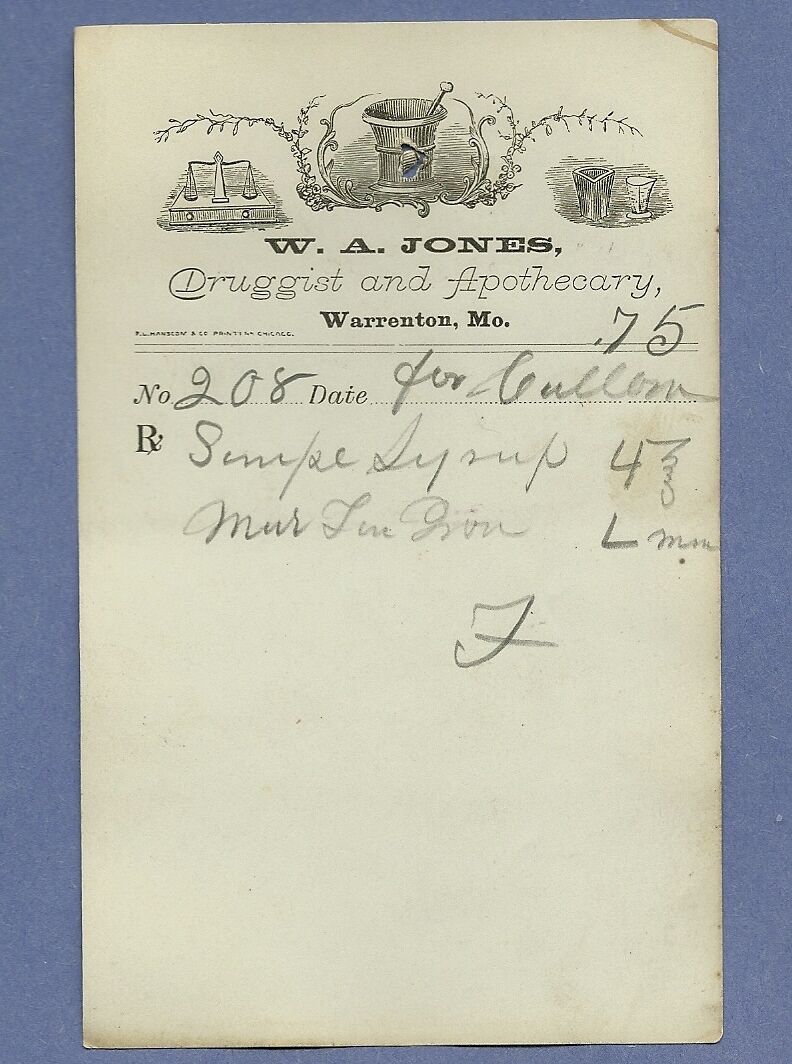 W. A. JONES,
Druggist and Apothecary,
Warrenton, Mo.
.75
P.L. HANSCOM & CO PRINTERS CHICAGO.
No 208 Date for Cullom
℞ Simple Syrup 4 ℥
Mur Tin Iron L mm
F